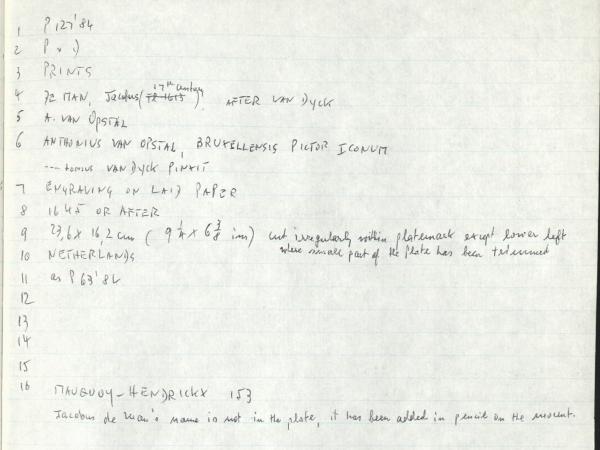 1 P 127'84
2 P x :)
3 PRINTS
4 DE MAN, Jacobus (17th century) AFTER VAN DYCK
5 A. VAN OPSTAL
6 ANTHONIUS VAN OPSTAL, BRUXELLENSIS PICTOR ICONUM
---tonius VAN DYCK PINXIT
7 ENGRAVING ON LAID PAPER
8 1645 OR AFTER
9 23,6 x 16,2 cm ( 9 1/4 x 6 3/8 ins) cut irregularly within platemark except lower left
where small part of the plate has been trimmed
10 NETHERLANDS
11 as P 63'84
12
13
14
15
16 MAUQUOY-HENDRICKX 153
Jacobus de Man's name is not in the plate, it has been added in pencil on the mount.